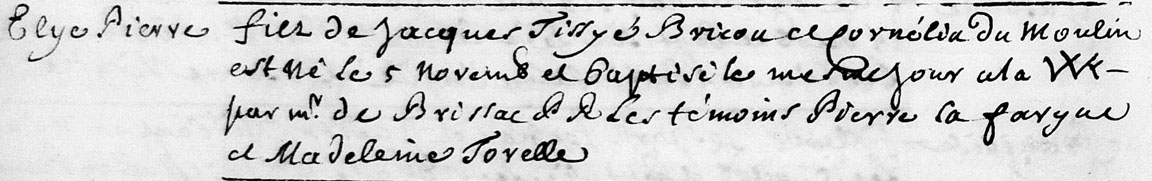 Elye Pierre fils de Jacques Tissyé Bricou et Cornélia du Moulin
est Né le 5 Novemb et baptisé le mesme Jour a la WK
par mr. de Brissac P R Les témoins Pierre la fargue
et Madeleine Torelle